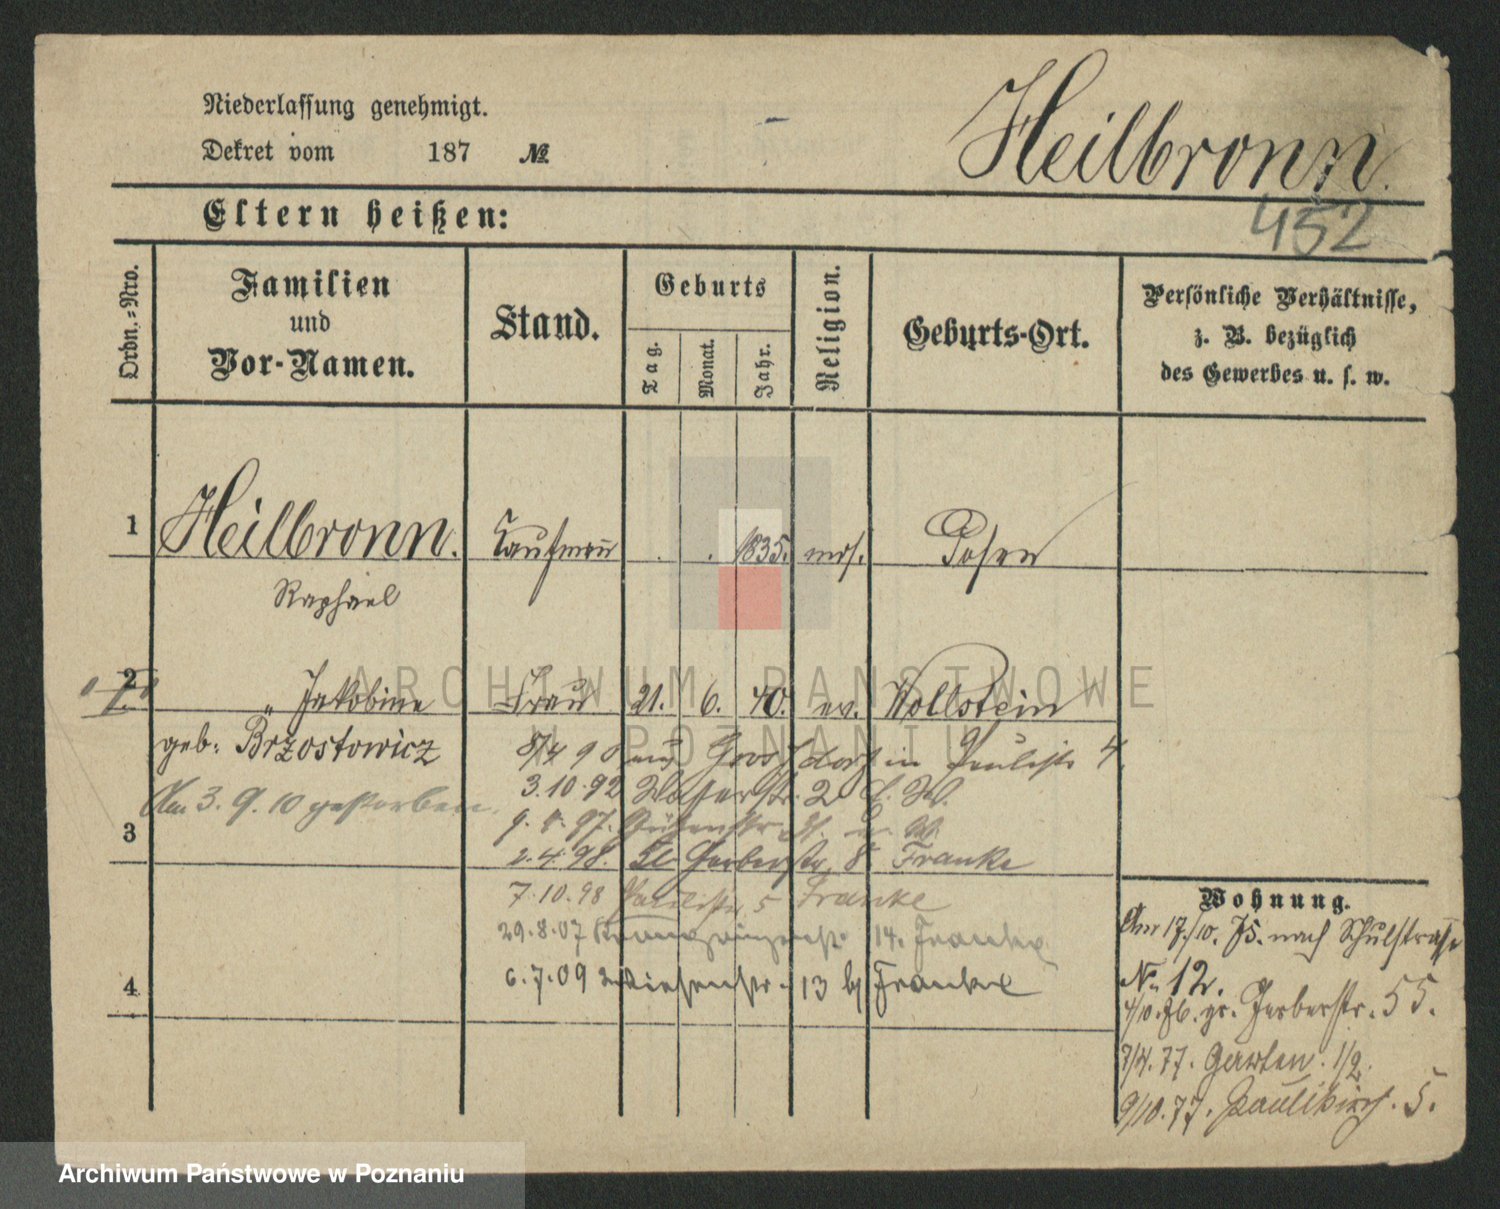 Niederlassung genehmigt.
Dekret vom 187 №
Heilbronn.
452
Eltern heißen:
Ordn.-Nro.
Familien
und
Vor-Namen.
Stand.
Geburts
Tag.
Monat.
Jahr.
Religion.
Geburts-Ort.
Persönliche Verhältnisse,
z. B. bezüglich
des Gewerbes u. s. w.
1 Heilbronn. Kaufmann . . 1835. mos. Posen
Raphael
2 " Jakobine Frau 21. 6. 40. ev. Wollstein
geb: Brzostowicz
Am 3. 9. 10 gestorben.
3
4
8/4 90 aus in Paulistr 4.
3.10.92 Wasserstr. 2
9. 8. 97.
2.4.98. Kl Gerberstr. 8. Franke
7.10.98 Paulistr. 5 Franke
29.8.07 14. Franke
6.7.09 Wiesenstr. 13 bj Franke
Wohnung.
Am 17./10. 75. nach Schulstrasse
No 12.
4/10. 76. gr. Gerberstr. 55.
7/4. 77. Garten. 1/2.
9/10. 77. Paulikirch. 5.
ARCHIWUM PAŃSTWOWE
W POZNANIU
Archiwum Państwowe w Poznaniu